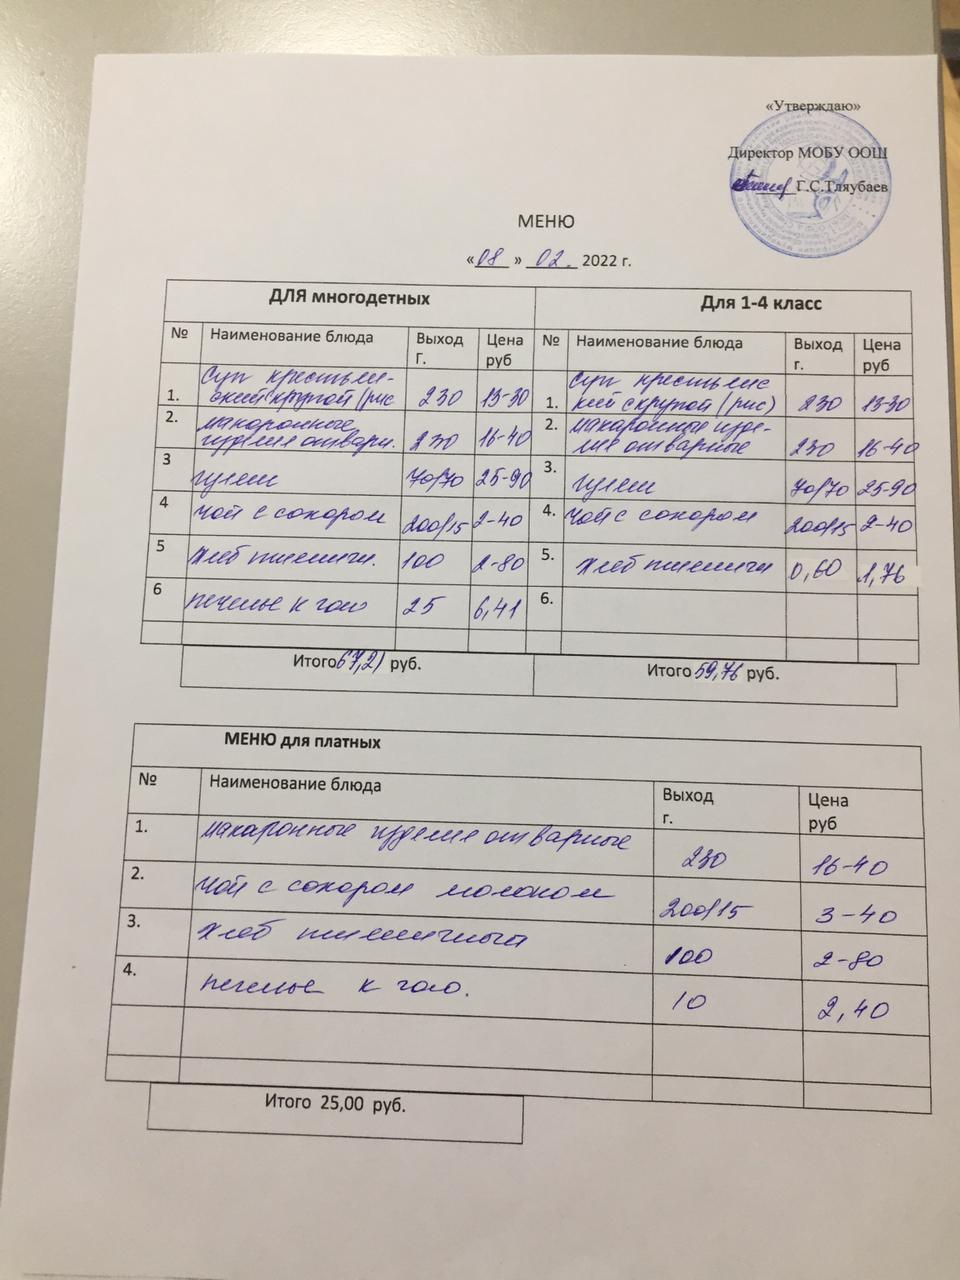 «Утверждаю»
Директор МОБУ ООШ
Г.С.Тляубаев
МЕНЮ
« 08 » 02. 2022 г.
ДЛЯ многодетных Для 1-4 класс
№ Наименование блюда Выход г. Цена руб № Наименование блюда Выход г. Цена руб
1. Суп крестьян- ский с крупой (рис 230 13-30 1. Суп крестьянс кий с крупой (рис) 230 13-30
2. макаронные изделия отварн. 230 16-40 2. макаронные изде- лия отварные 230 16-40
3 гуляш 70/70 25-90 3. гуляш 70/70 25-90
4 чай с сахаром 200/15 2-40 4. чай с сахаром 200/15 2-40
5 хлеб пшеничн. 100 2-80 5. хлеб пшеничн 0,60 1,76
6 печенье к чаю 25 6,41 6.
Итого 67,21 руб. Итого 59,76 руб.
МЕНЮ для платных
№ Наименование блюда Выход г. Цена руб
1. макаронные изделия отварные 230 16-40
2. чай с сахаром молоком 200/15 3-40
3. хлеб пшеничный 100 2-80
4. печенье к чаю. 10 2,40
Итого 25,00 руб.